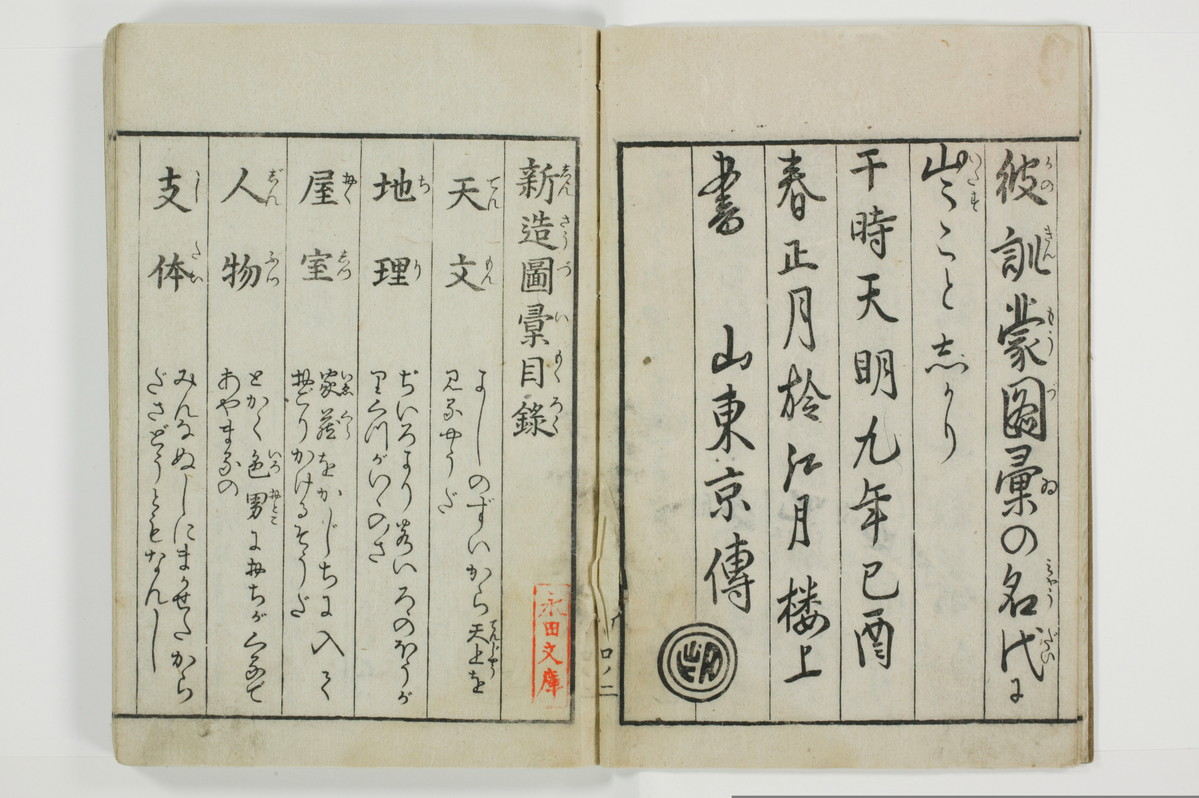 彼訓蒙圖彙の名代に
出すことしかり
干時天明九年己酉
春正月於江月楼上
書 山東京傳
新造圖彙目録
天文 よしのずいから天上を
見るやうだ
地理 ぢいろより
屋室 家蔵をかしちに入て
やどりかけるそうだ
人物 とかく色男におちがくるで
あやまるの
支体 みんなぬしにまかせたから
ださどうともなんし
口ノ二
永田文庫